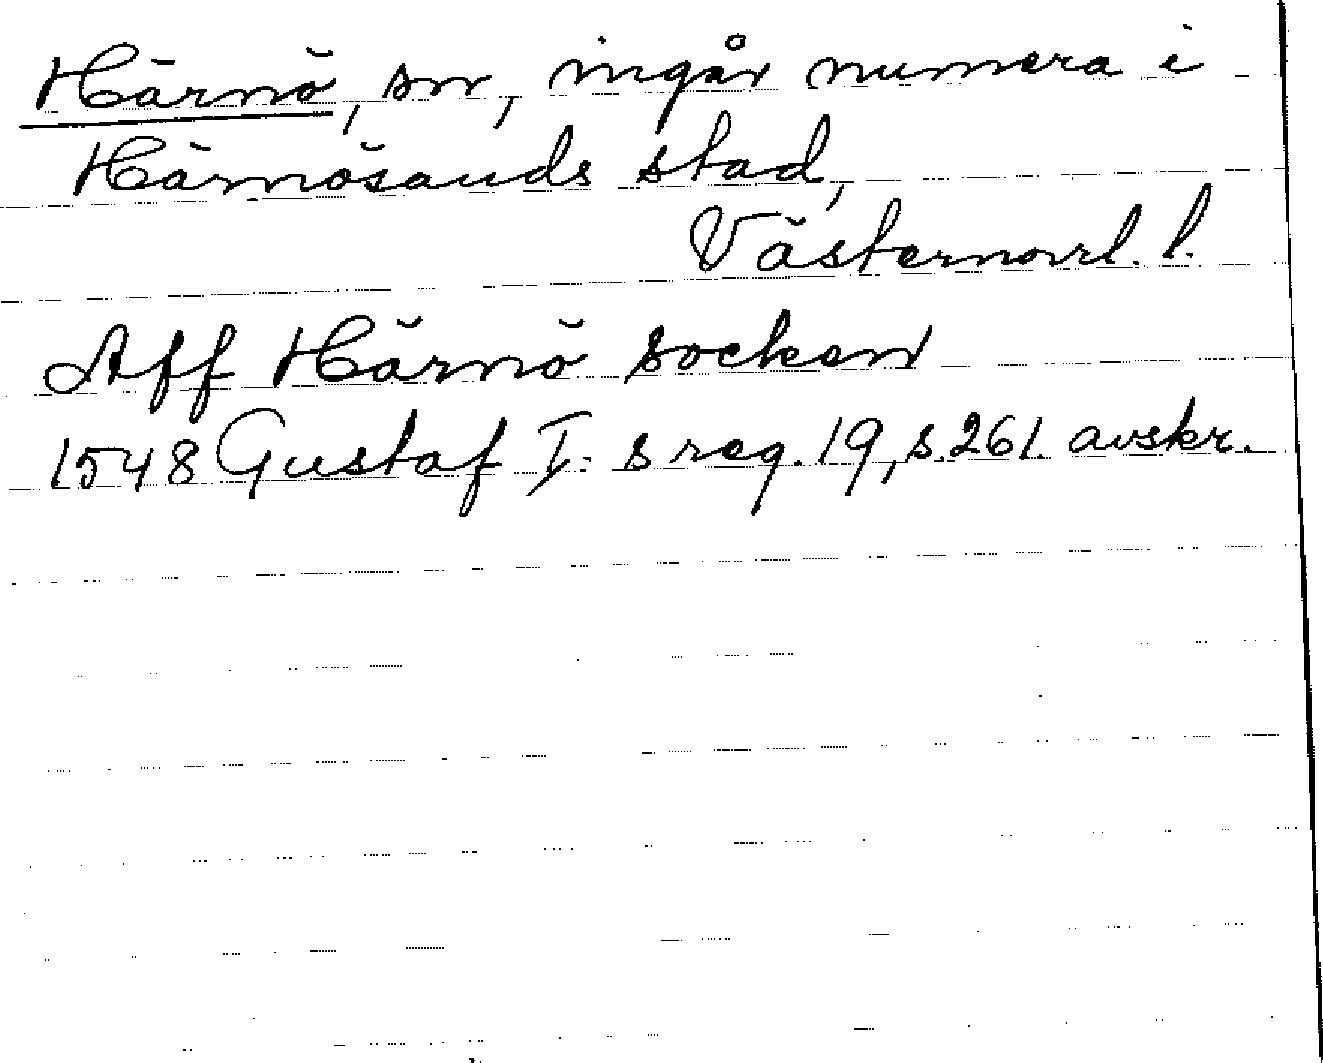 Härnö, sn, ingår numera i
Härnösands stad,
Västernorrl. l.
Aff Härnö socken
1548 Gustaf I:s reg. 19, s. 261. avskr.